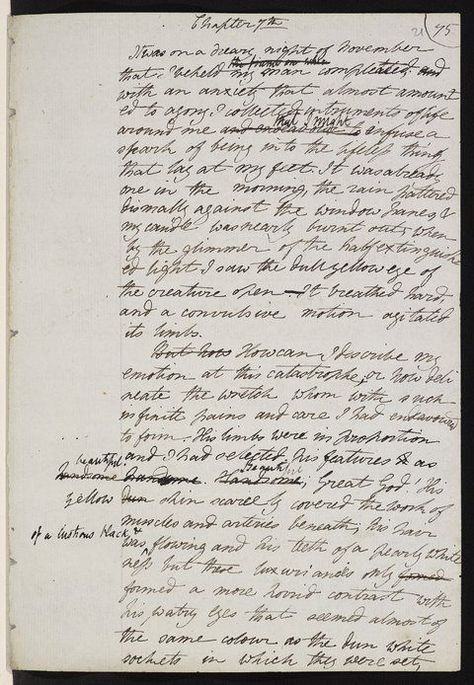 Chapter 7th
21 75
It was on a dreary night of November
the frame on whic
that I beheld my man compleated and
with an anxiety that almost amount
ed to agony I collected instruments of life
that I might
around me and endeavour to infuse a
spark of being into the lifeless thing
that lay at my feet. It was already
one in the morning, the rain pattered
dismally against the window panes &
my candle was nearly burnt out, when
by the glimmer of the half extinguish
ed light I saw the dull yellow eye of
the creature open - It breathed hard,
and a convulsive motion agitated
its limbs.
But how How can I describe my
emotion at this catastrophe, or how deli
neate the wretch whom with such
infinite pains and care I had endeavoured
to form. His limbs were in proportion
and I had selected his features as
beautiful. handsome handsome. Beautiful Handsome; Great God! His
yellow dun skin scarcely covered the work of
muscles and arteries beneath; his hair
of a lustrous black &
was flowing and his teeth of a pearly white
ness but these luxuriances only formed
formed a more horrid contrast with
his watry eyes that seemed almost of
the same colour as the dun white
sockets in which they were set,